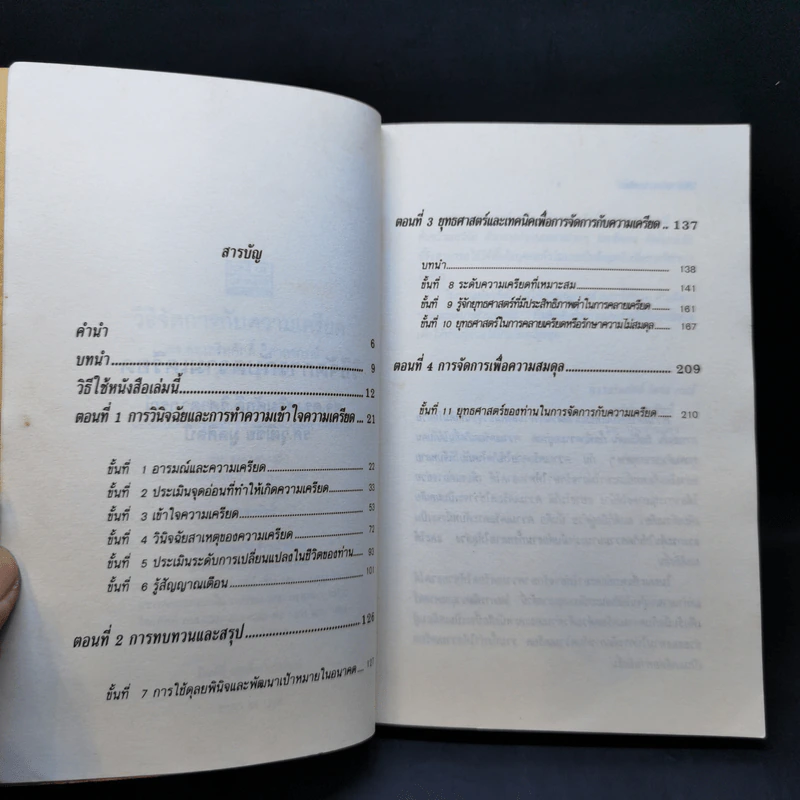 สารบัญ
คำนำ 6
บทนำ 9
วิธีใช้หนังสือเล่มนี้ 12
ตอนที่ 1 การวินิจฉัยและการทำความเข้าใจความเครียด 21
ขั้นที่ 1 อารมณ์และความเครียด 22
ขั้นที่ 2 ประเมินจุดอ่อนที่ทำให้เกิดความเครียด 33
ขั้นที่ 3 เข้าใจความเครียด 53
ขั้นที่ 4 วินิจฉัยสาเหตุของความเครียด 72
ขั้นที่ 5 ประเมินระดับการเปลี่ยนแปลงในชีวิตของท่าน 90
ขั้นที่ 6 รู้สัญญาณเตือน 101
ตอนที่ 2 การทบทวนและสรุป 126
ขั้นที่ 7 การใช้ดุลยพินิจและพัฒนาเป้าหมายในอนาคต 127
ตอนที่ 3 ยุทธศาสตร์และเทคนิคเพื่อการจัดการกับความเครียด .. 137
บทนำ 138
ขั้นที่ 8 ระดับความเครียดที่เหมาะสม 141
ขั้นที่ 9 รู้จักยุทธศาสตร์ที่มีประสิทธิภาพต่ำในการคลายเครียด 161
ขั้นที่ 10 ยุทธศาสตร์ในการคลายเครียดหรือรักษาความไม่สมดุล 167
ตอนที่ 4 การจัดการเพื่อความสมดุล 209
ขั้นที่ 11 ยุทธศาสตร์ของท่านในการจัดการกับความเครียด 210